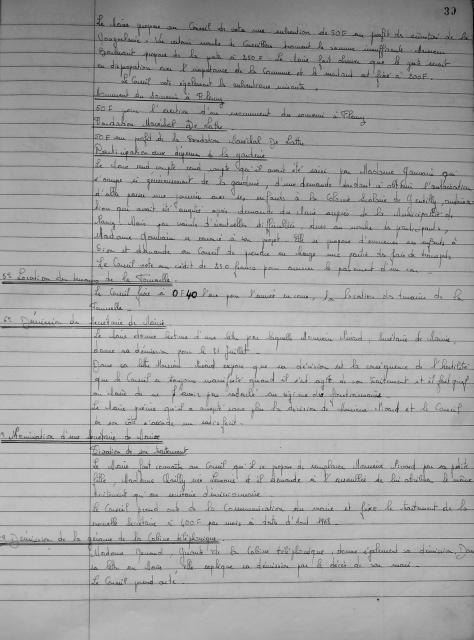 39
Le Maire propose au Conseil de voter une subvention de 50F au profit du
Un certain nombre de Conseillers trouvent la somme insuffisante. Monsieur
propose de la porter à 250F. Le Maire fait observer que le geste serait
en disproportion avec l'importance de la Commune et le montant est fixé à 200F.
Le Conseil vote également la subvention suivante.
Monument du souvenir à Fleury
50F pour l'érection d'un monument du souvenir à Fleury
Fondation Maréchal De Lattre
50F au profit de la Fondation Maréchal De Lattre
Participation aux dépenses de la garderie
Le Maire rend compte qu'il avait été saisi par Madame qui
s'occupe si généreusement de la garderie, d'une demande tendant à obtenir l'autorisation
d'aller passer une journée avec les enfants à la Colonie Scolaire de
qui avait été après demande du Maire auprès de la Municipalité de
Mais par suite d'éventuelles difficultés avec un nombre de participants,
Madame a renoncé à son projet. Elle se propose d'emmener les enfants à
Sion et demande au Conseil de prendre en charge une partie des frais de transport.
Le Conseil vote un crédit de 250 francs pour assurer le paiement d'un car.
5° Location des terrains de la
Le Conseil fixe à 0F40 l'are pour l'année en cours, la location des terrains de la
6° Démission du Secrétaire de Mairie
Le Maire donne lecture d'une lettre par laquelle Monsieur Minard, Secrétaire de Mairie,
donne sa démission pour le 31 Juillet.
Dans sa lettre Monsieur Minard expose que sa décision est la conséquence de l'hostilité
que le Conseil a toujours manifestée quand il s'est agit de son traitement et il fait grief
au Maire de ne l'avoir pas au régime des fonctionnaires.
Le Maire précise qu'il a accepté sans plus la décision de Monsieur Minard et le Conseil
en son côté
Nomination d'une secrétaire de Mairie
Fixation de son traitement
Le Maire fait connaître au Conseil qu'il se propose de remplacer Monsieur Minard par sa petite
fille, Madame née et il demande à l'assemblée de lui attribuer le même
traitement qu'au secrétaire démissionnaire.
Le Conseil prend acte de la Communication du maire et fixe le traitement de la
nouvelle secrétaire à 400F par mois à dater d'Août 1968.
Démission de la gérante de la Cabine téléphonique.
Madame Gérante de la Cabine téléphonique, donne également sa démission. Dans
sa lettre au Maire, elle explique sa démission par le décès de son mari.
Le Conseil prend acte.